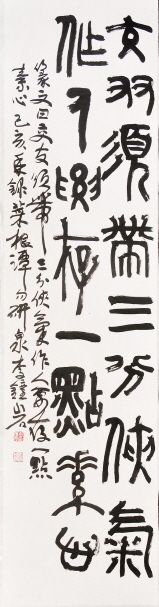 友羽須帶三分俠氣
作人要存一點素心
篆文曰交友須帶三分俠氣作人要存一點
素心己亥夏錄菜根譚句研泉李鐘